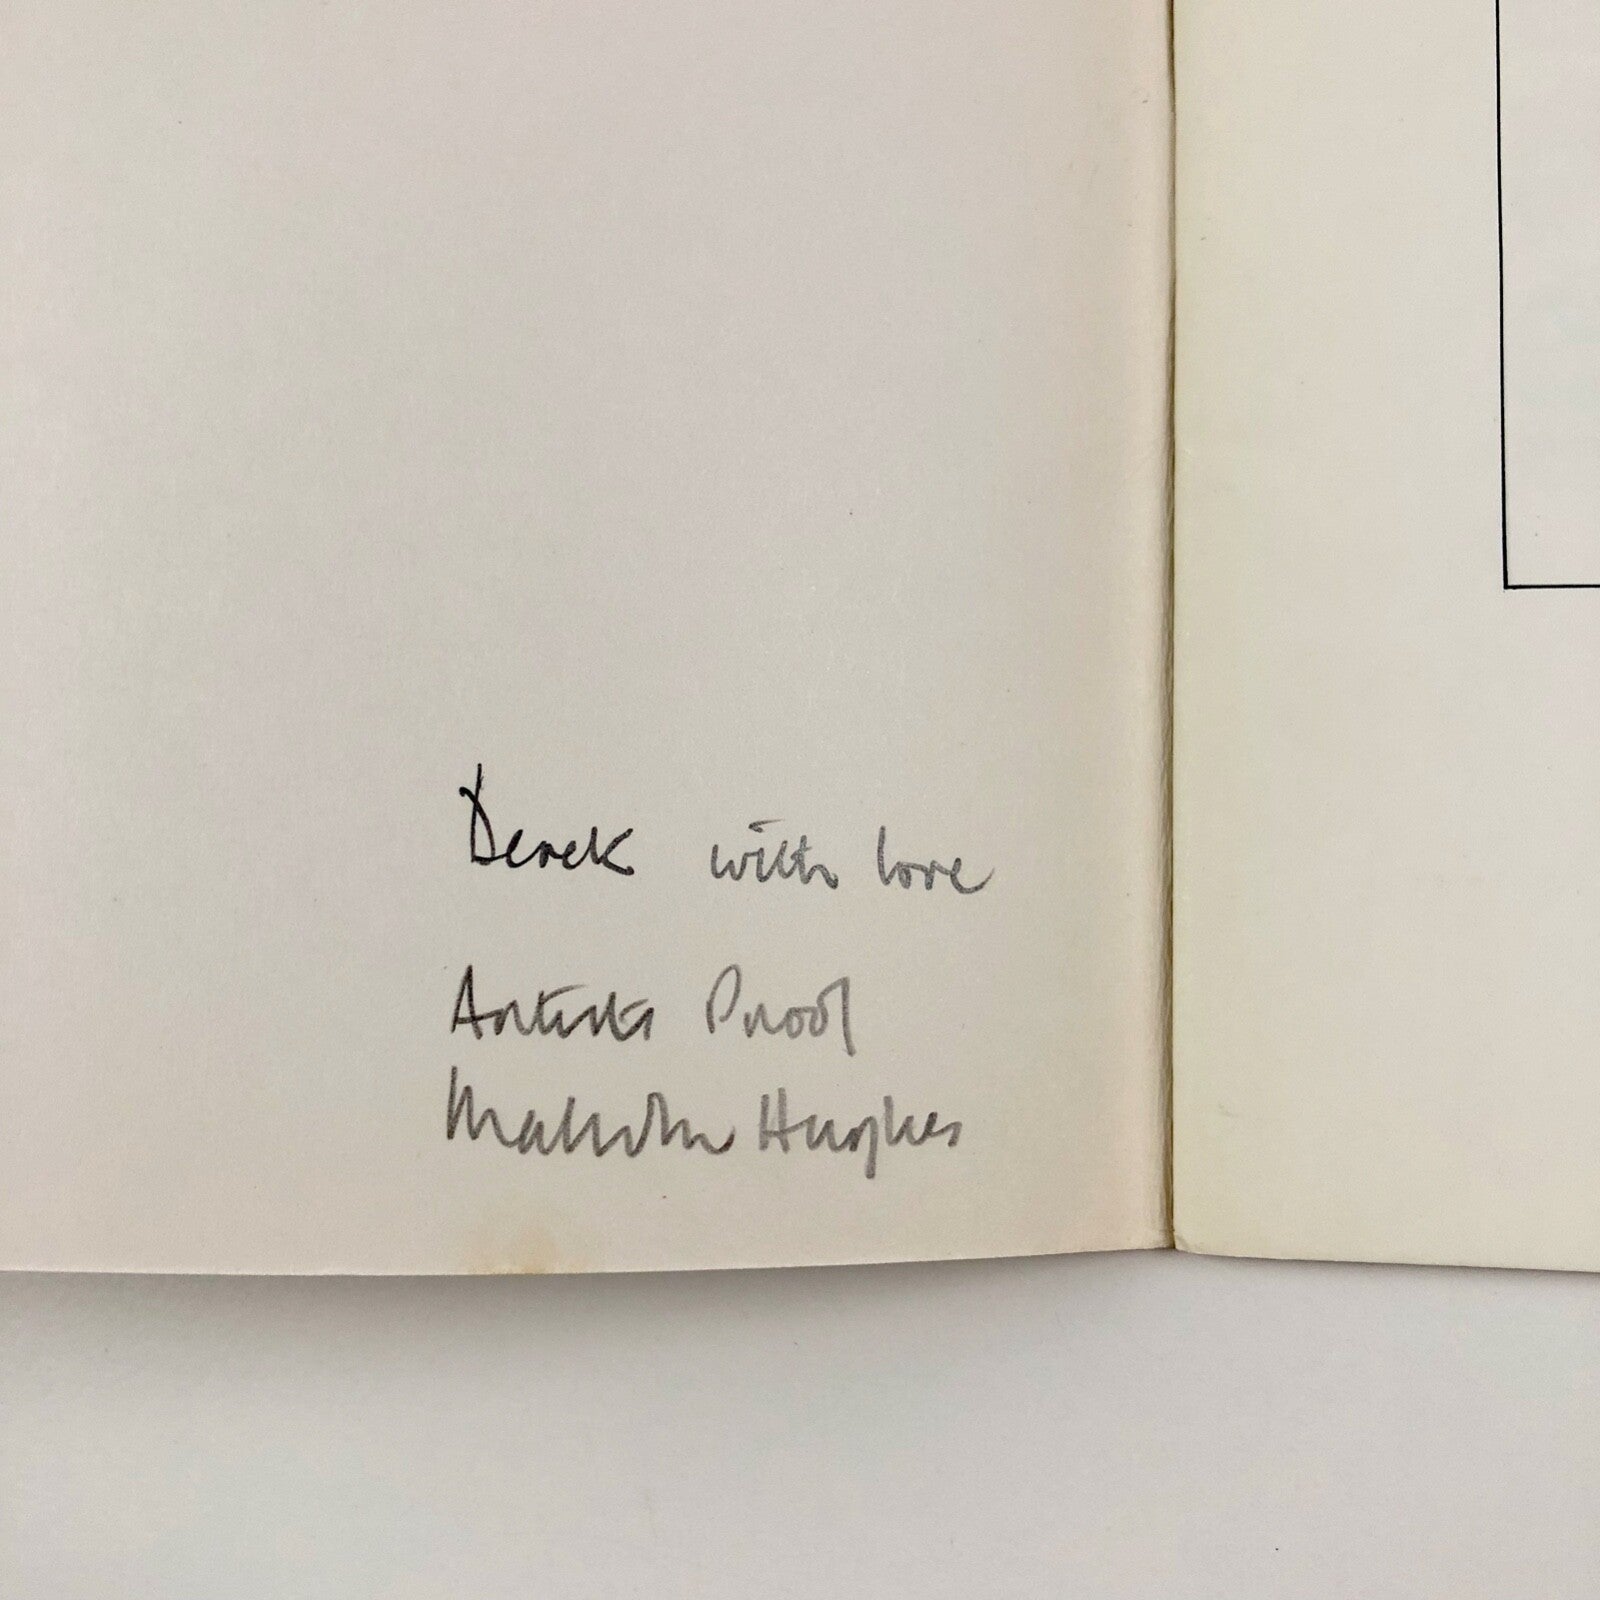 Derek with love
Artists Proof
Malcolm Hughes